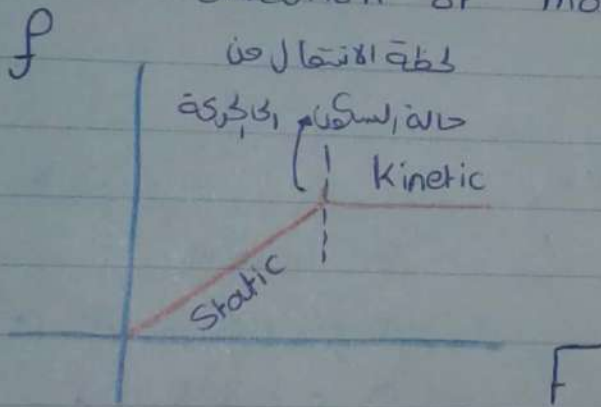 f
لحظة الانتقال من
حالة السكون إلى الحركة
Kinetic
Static
F